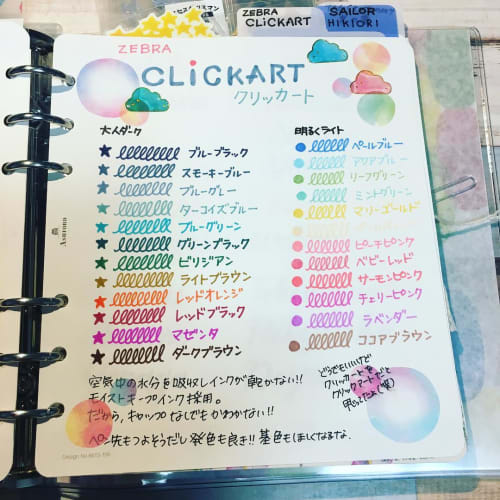 ZEBRA CLiCKART
SAILOR HiKIORI
ZEBRA
CLiCKART
クリッカート
大人ダーク
ブルーブラック
スモーキーブルー
ブルーグレー
ターコイズブルー
ブルーグリーン
グリーンブラック
ビリジアン
ライトブラウン
レッドオレンジ
レッドブラック
マゼンタ
ダークブラウン
明るくライト
ペールブルー
アクアブルー
リーフグリーン
ミントグリーン
マリーゴールド
ピーチピンク
ベビーレッド
サーモンピンク
チェリーピンク
ラベンダー
ココアブラウン
空気中の水分を吸収しインクが乾かない!!
モイストキープインク採用。
だから、キャップなしでもかわかない!!
ペン先もつよそうだし発色も良き!! 墓色もほしくなるな.
どうでもいいけど
クリッカートを
クリックアート
思ってたよ(笑)
ASHFORD